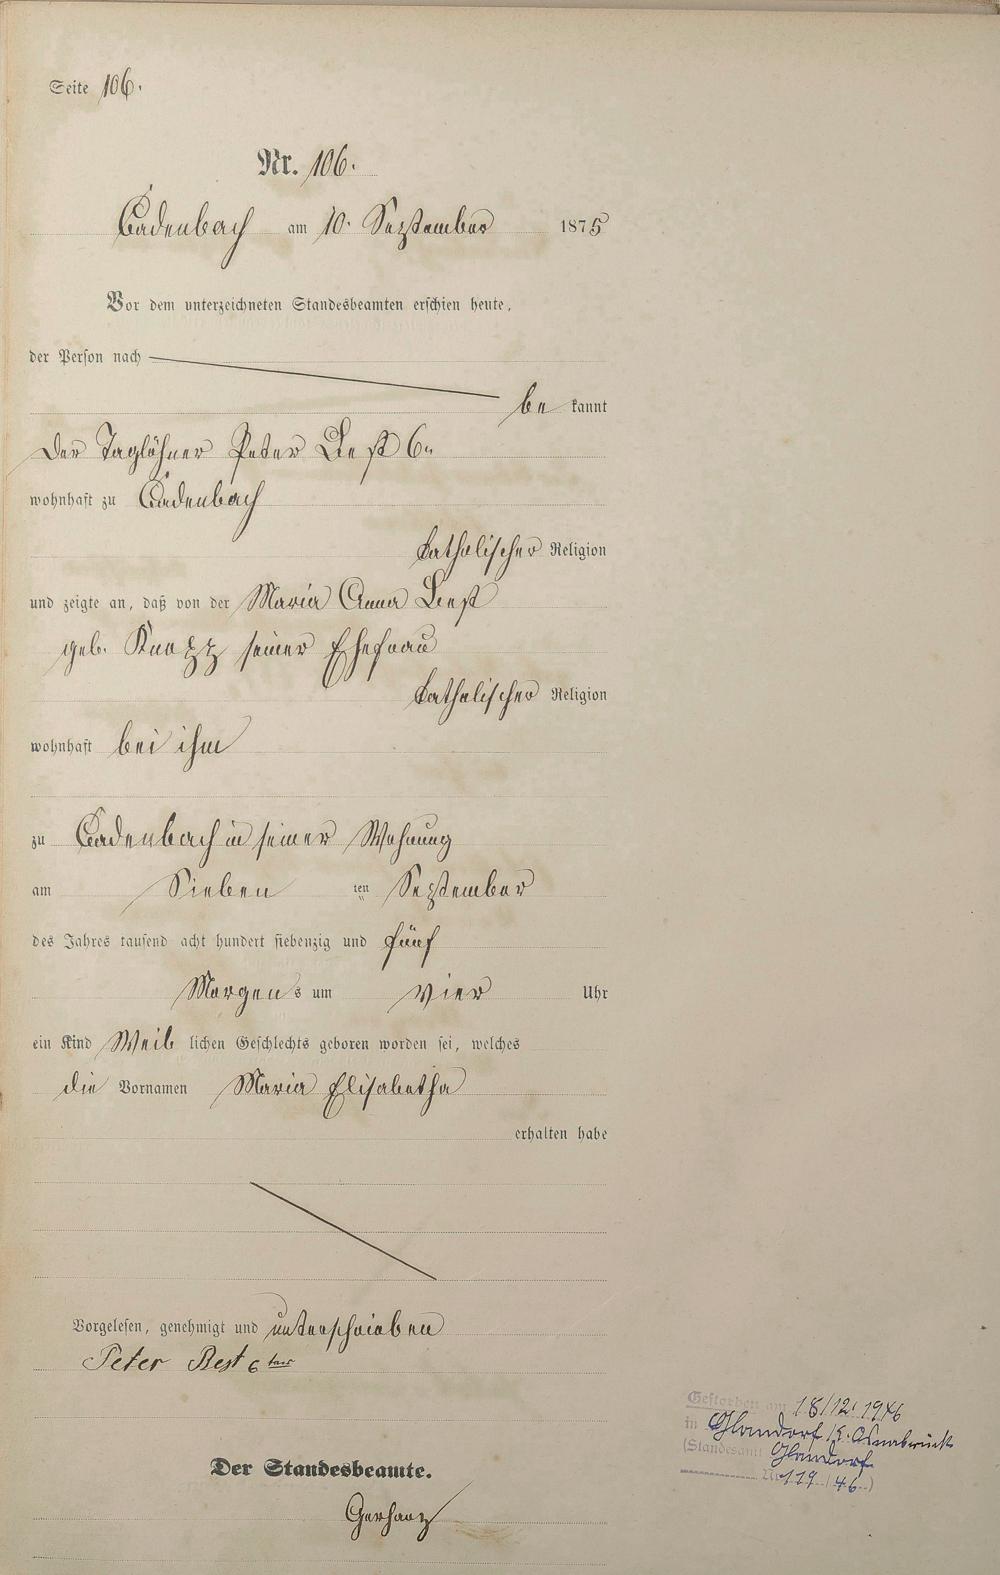 Seite 106.
Nr. 106.
Cadenbach am 10. September 1875
Vor dem unterzeichneten Standesbeamten erschien heute,
der Person nach
be kannt
der Taglöhner Peter Best 6n
wohnhaft zu Cadenbach
katholischer Religion
und zeigte an, daß von der Maria Anna Best
geb. Knopp seiner Ehefrau
katholischer Religion
wohnhaft bei ihm
zu Cadenbach in seiner Wohnung
am Sieben ten September
des Jahres tausend acht hundert siebenzig und fünf
Morgens um vier Uhr
ein Kind Weib lichen Geschlechts geboren worden sei, welches
die Vornamen Maria Elisabetha
erhalten habe
Vorgelesen, genehmigt und unterschrieben
Peter Best 6ter
Der Standesbeamte.
Gerharz
Gestorben am 18/12. 1946
in Glandorf K. Osnabrück
(Standesamt Glandorf
Nr. 119/46)